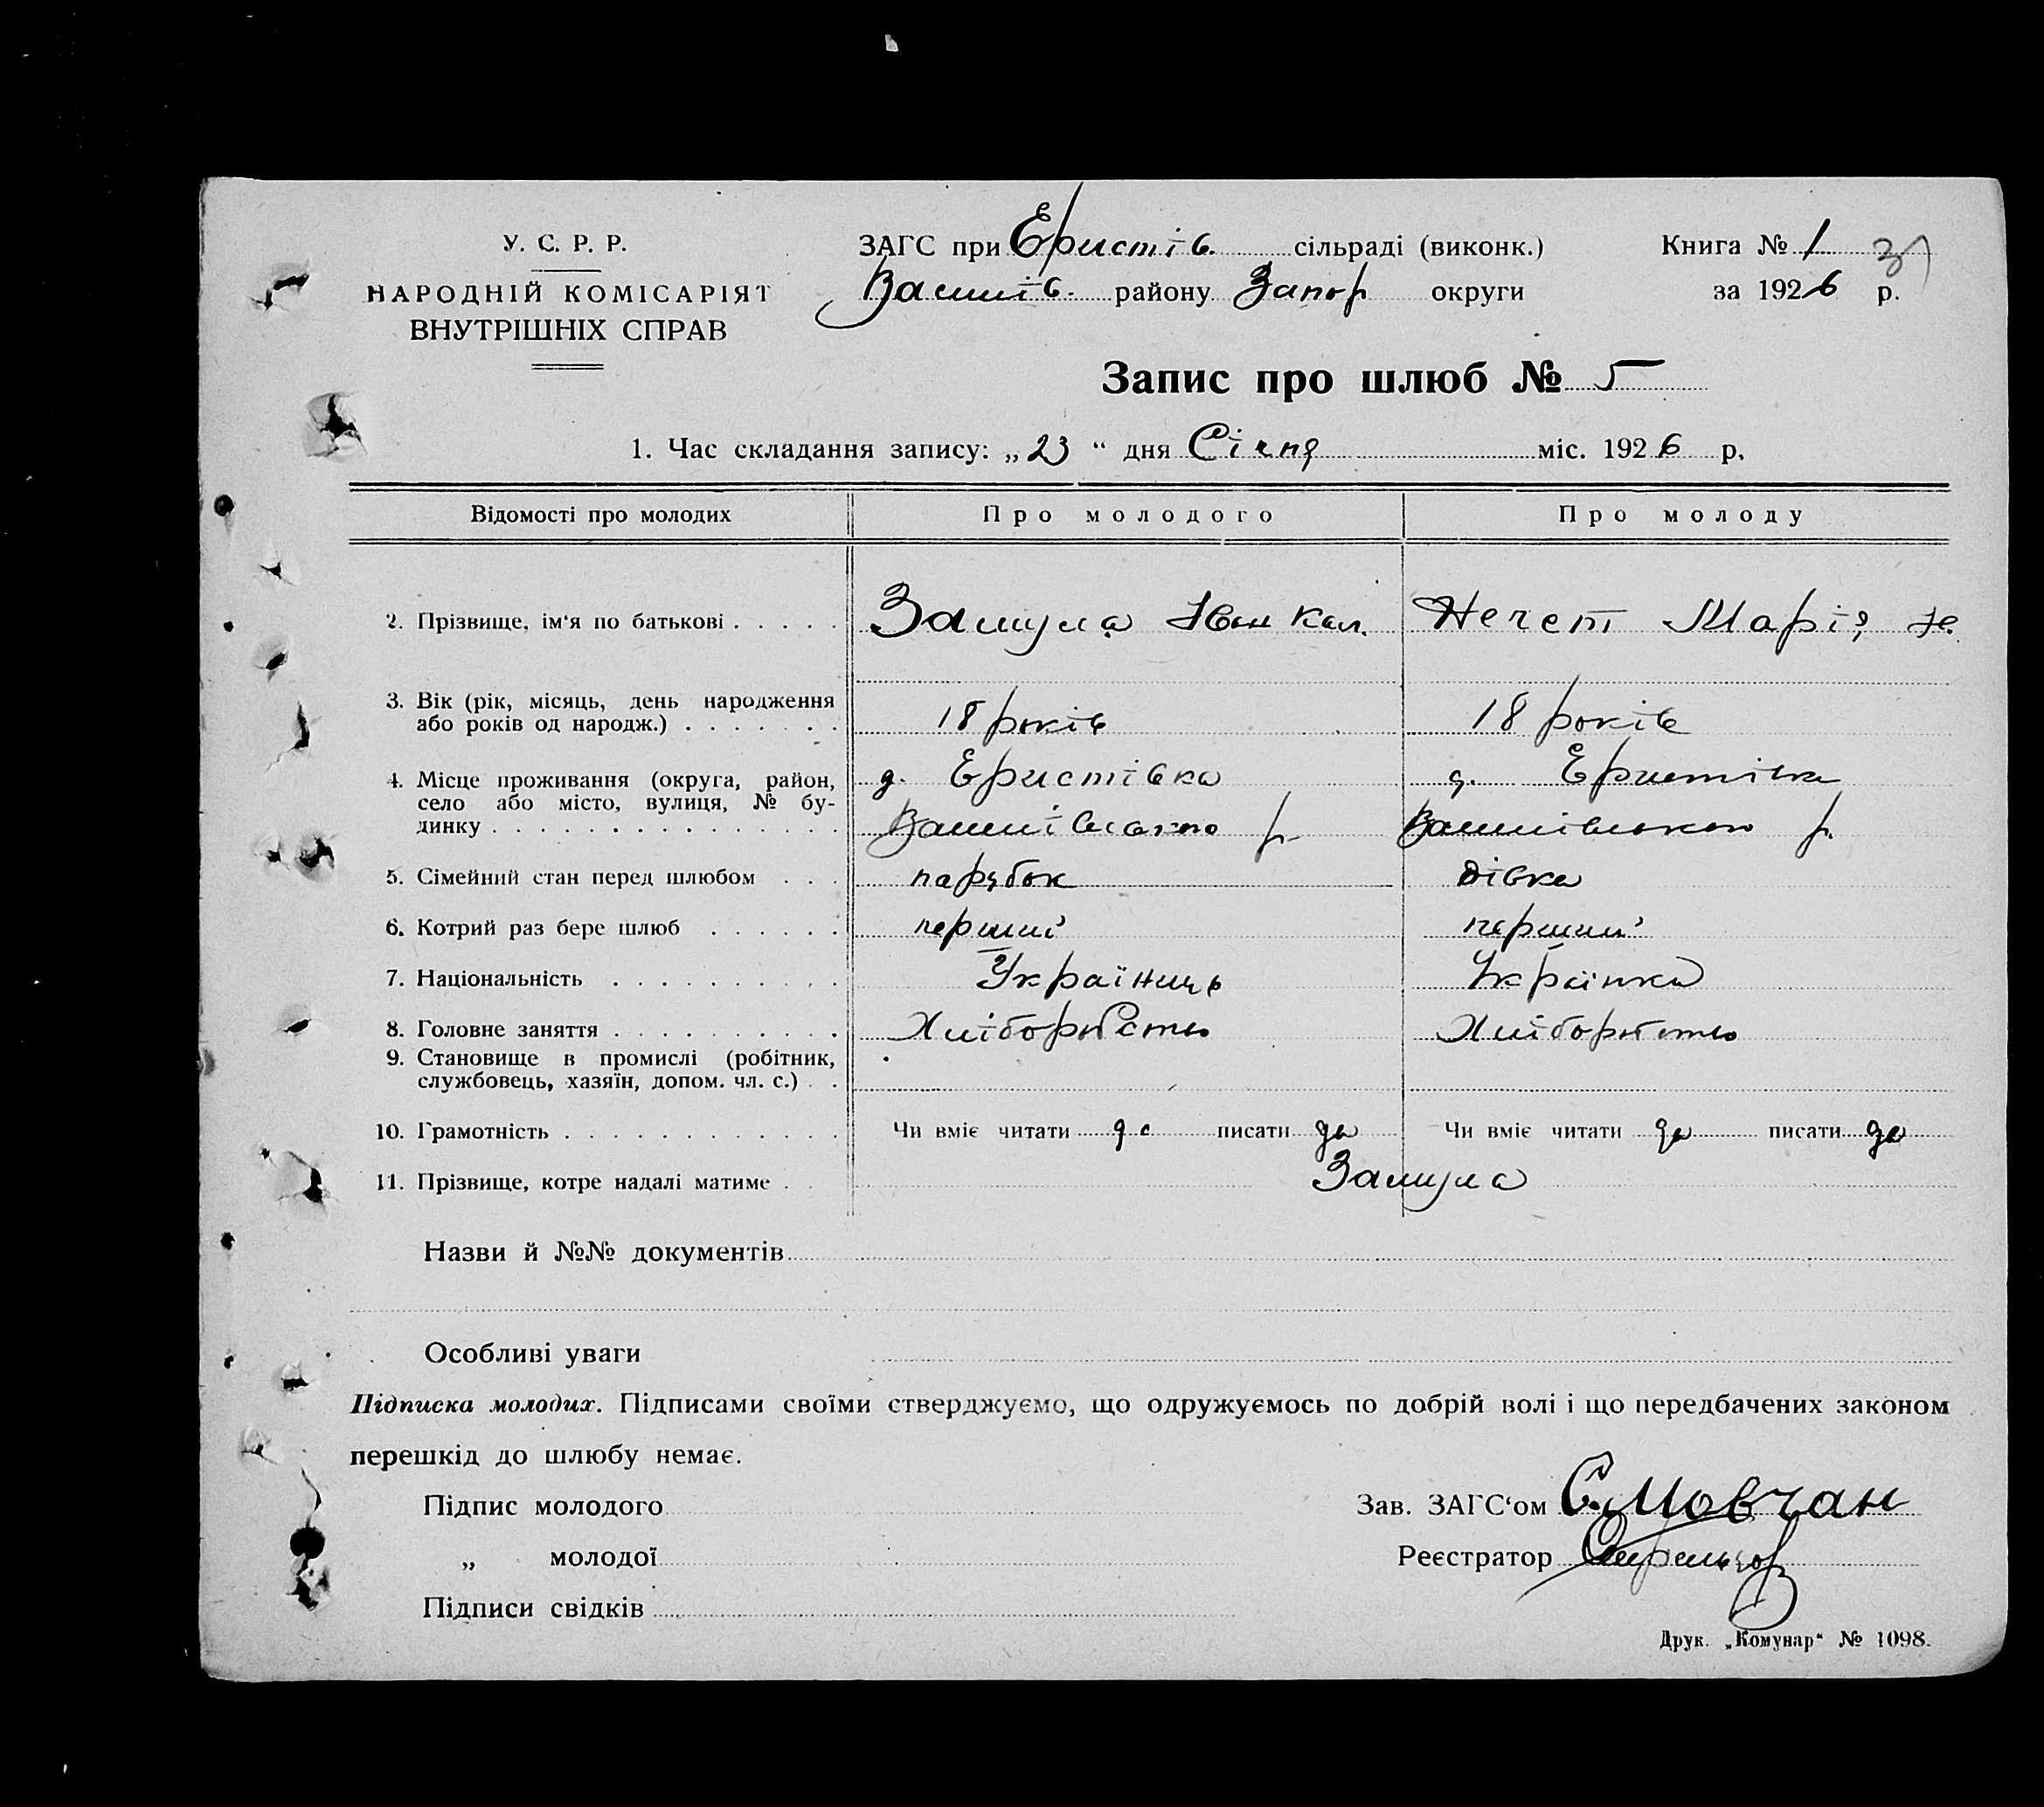 У. С. Р. Р.
НАРОДНІЙ КОМІСАРІЯТ
ВНУТРІШНІХ СПРАВ
ЗАГС при Еристів. сільраді (виконк.)
Васшів. району Запор округи
Книга № 1
за 1926 р.
Запис про шлюб № 5
1. Час складання запису: „23“ дня Січня міс. 1926 р.
Відомості про молодих Про молодого Про молоду
2. Прізвище, ім‘я по батькові Замула Іван Кал. Нечет Марія
3. Вік (рік, місяць, день народження
або років од народж.) 18 років 18 років
4. Місце проживання (округа, район, д. Еристівка д. Еристівка
село або місто, вулиця, № бу-
динку р. р.
5. Сімейний стан перед шлюбом парубок дівка
6. Котрий раз бере шлюб перший перший
7. Національність Українць Українка
8. Головне заняття Хліборобство Хліборобство
9. Становище в промислі (робітник,
службовець, хазяїн, допом. чл. с.)
10. Грамотність Чи вміє читати да писати да Чи вміє читати да писати да
11. Прізвище, котре надалі матиме Замула
Назви й №№ документів
Особливі уваги
Підписка молодих. Підписами своїми стверджуємо, що одружуємось по добрій волі і що передбачених законом
перешкід до шлюбу немає.
Підпис молодого
„ молодої
Підписи свідків
Зав. ЗАГС‘ом С. Мовчан
Реєстратор
Друк. „Комунар“ № 1098.